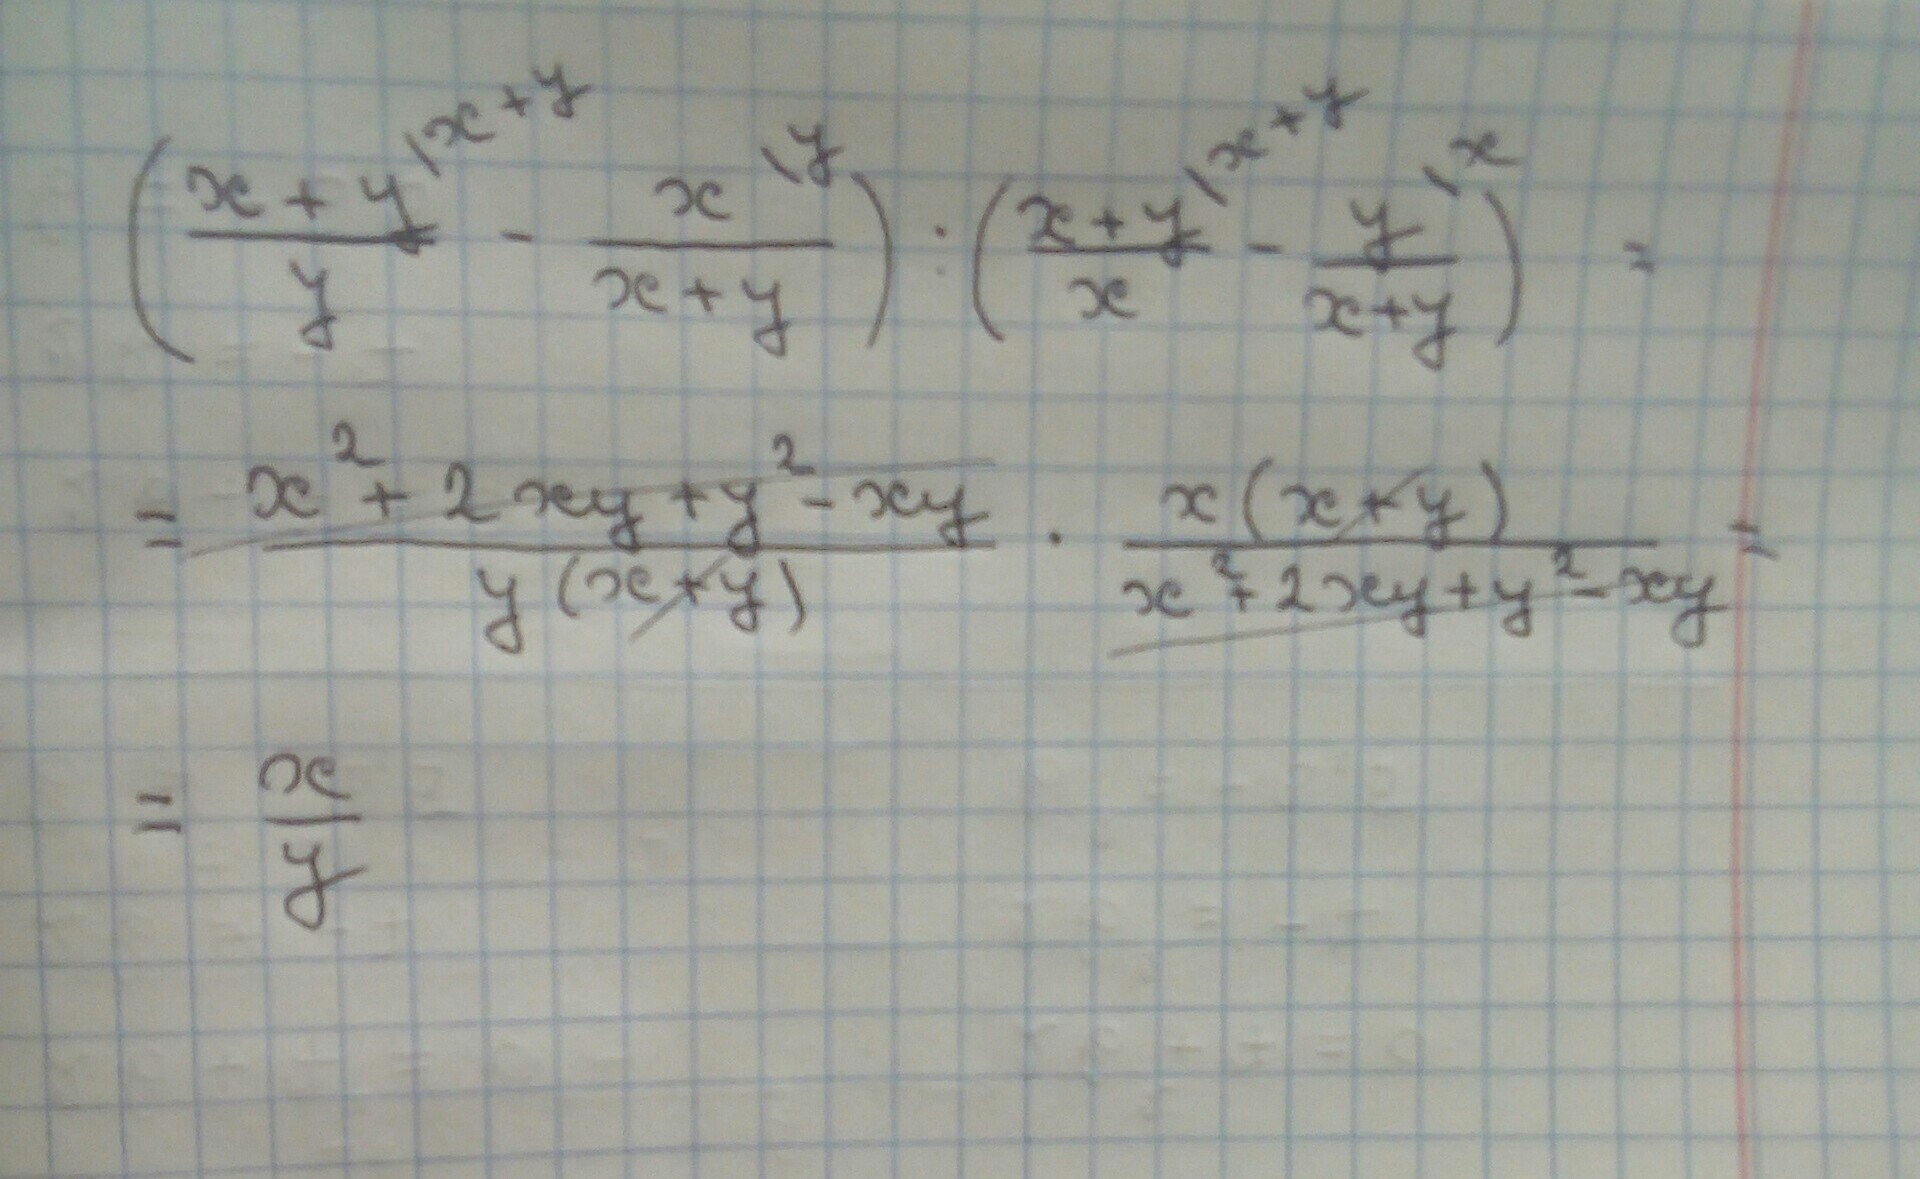 ( (x+y)/y \x+y - x/(x+y) \y ) : ( (x+y)/x \x+y - y/(x+y) \x ) =
= (x²+2xy+y²-xy)/(y(x+y)) · (x(x+y))/(x²+2xy+y²-xy) =
= x/y